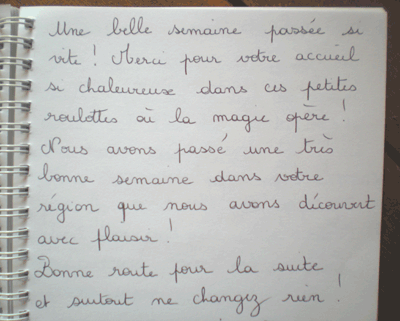 Une belle semaine passée si
vite ! Merci pour votre accueil
si chaleureux dans ces petites
roulottes où la magie opère !
Nous avons passé une très
bonne semaine dans votre
région que nous avons découvert
avec plaisir !
Bonne route pour la suite
et surtout ne changez rien !